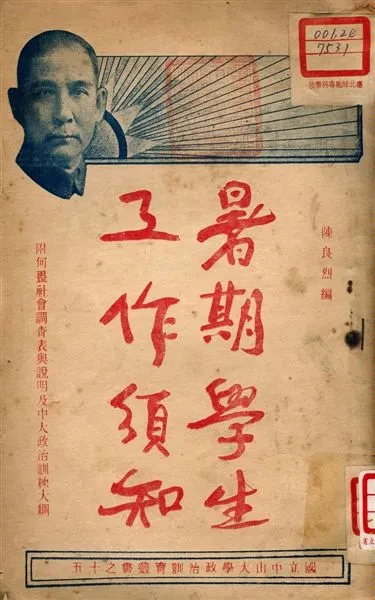 7531
陳良烈編
暑期學生
工作須知
附何畏社會調查表與說明及中大政治訓練大綱
國立中山大學政治訓育叢書之十五